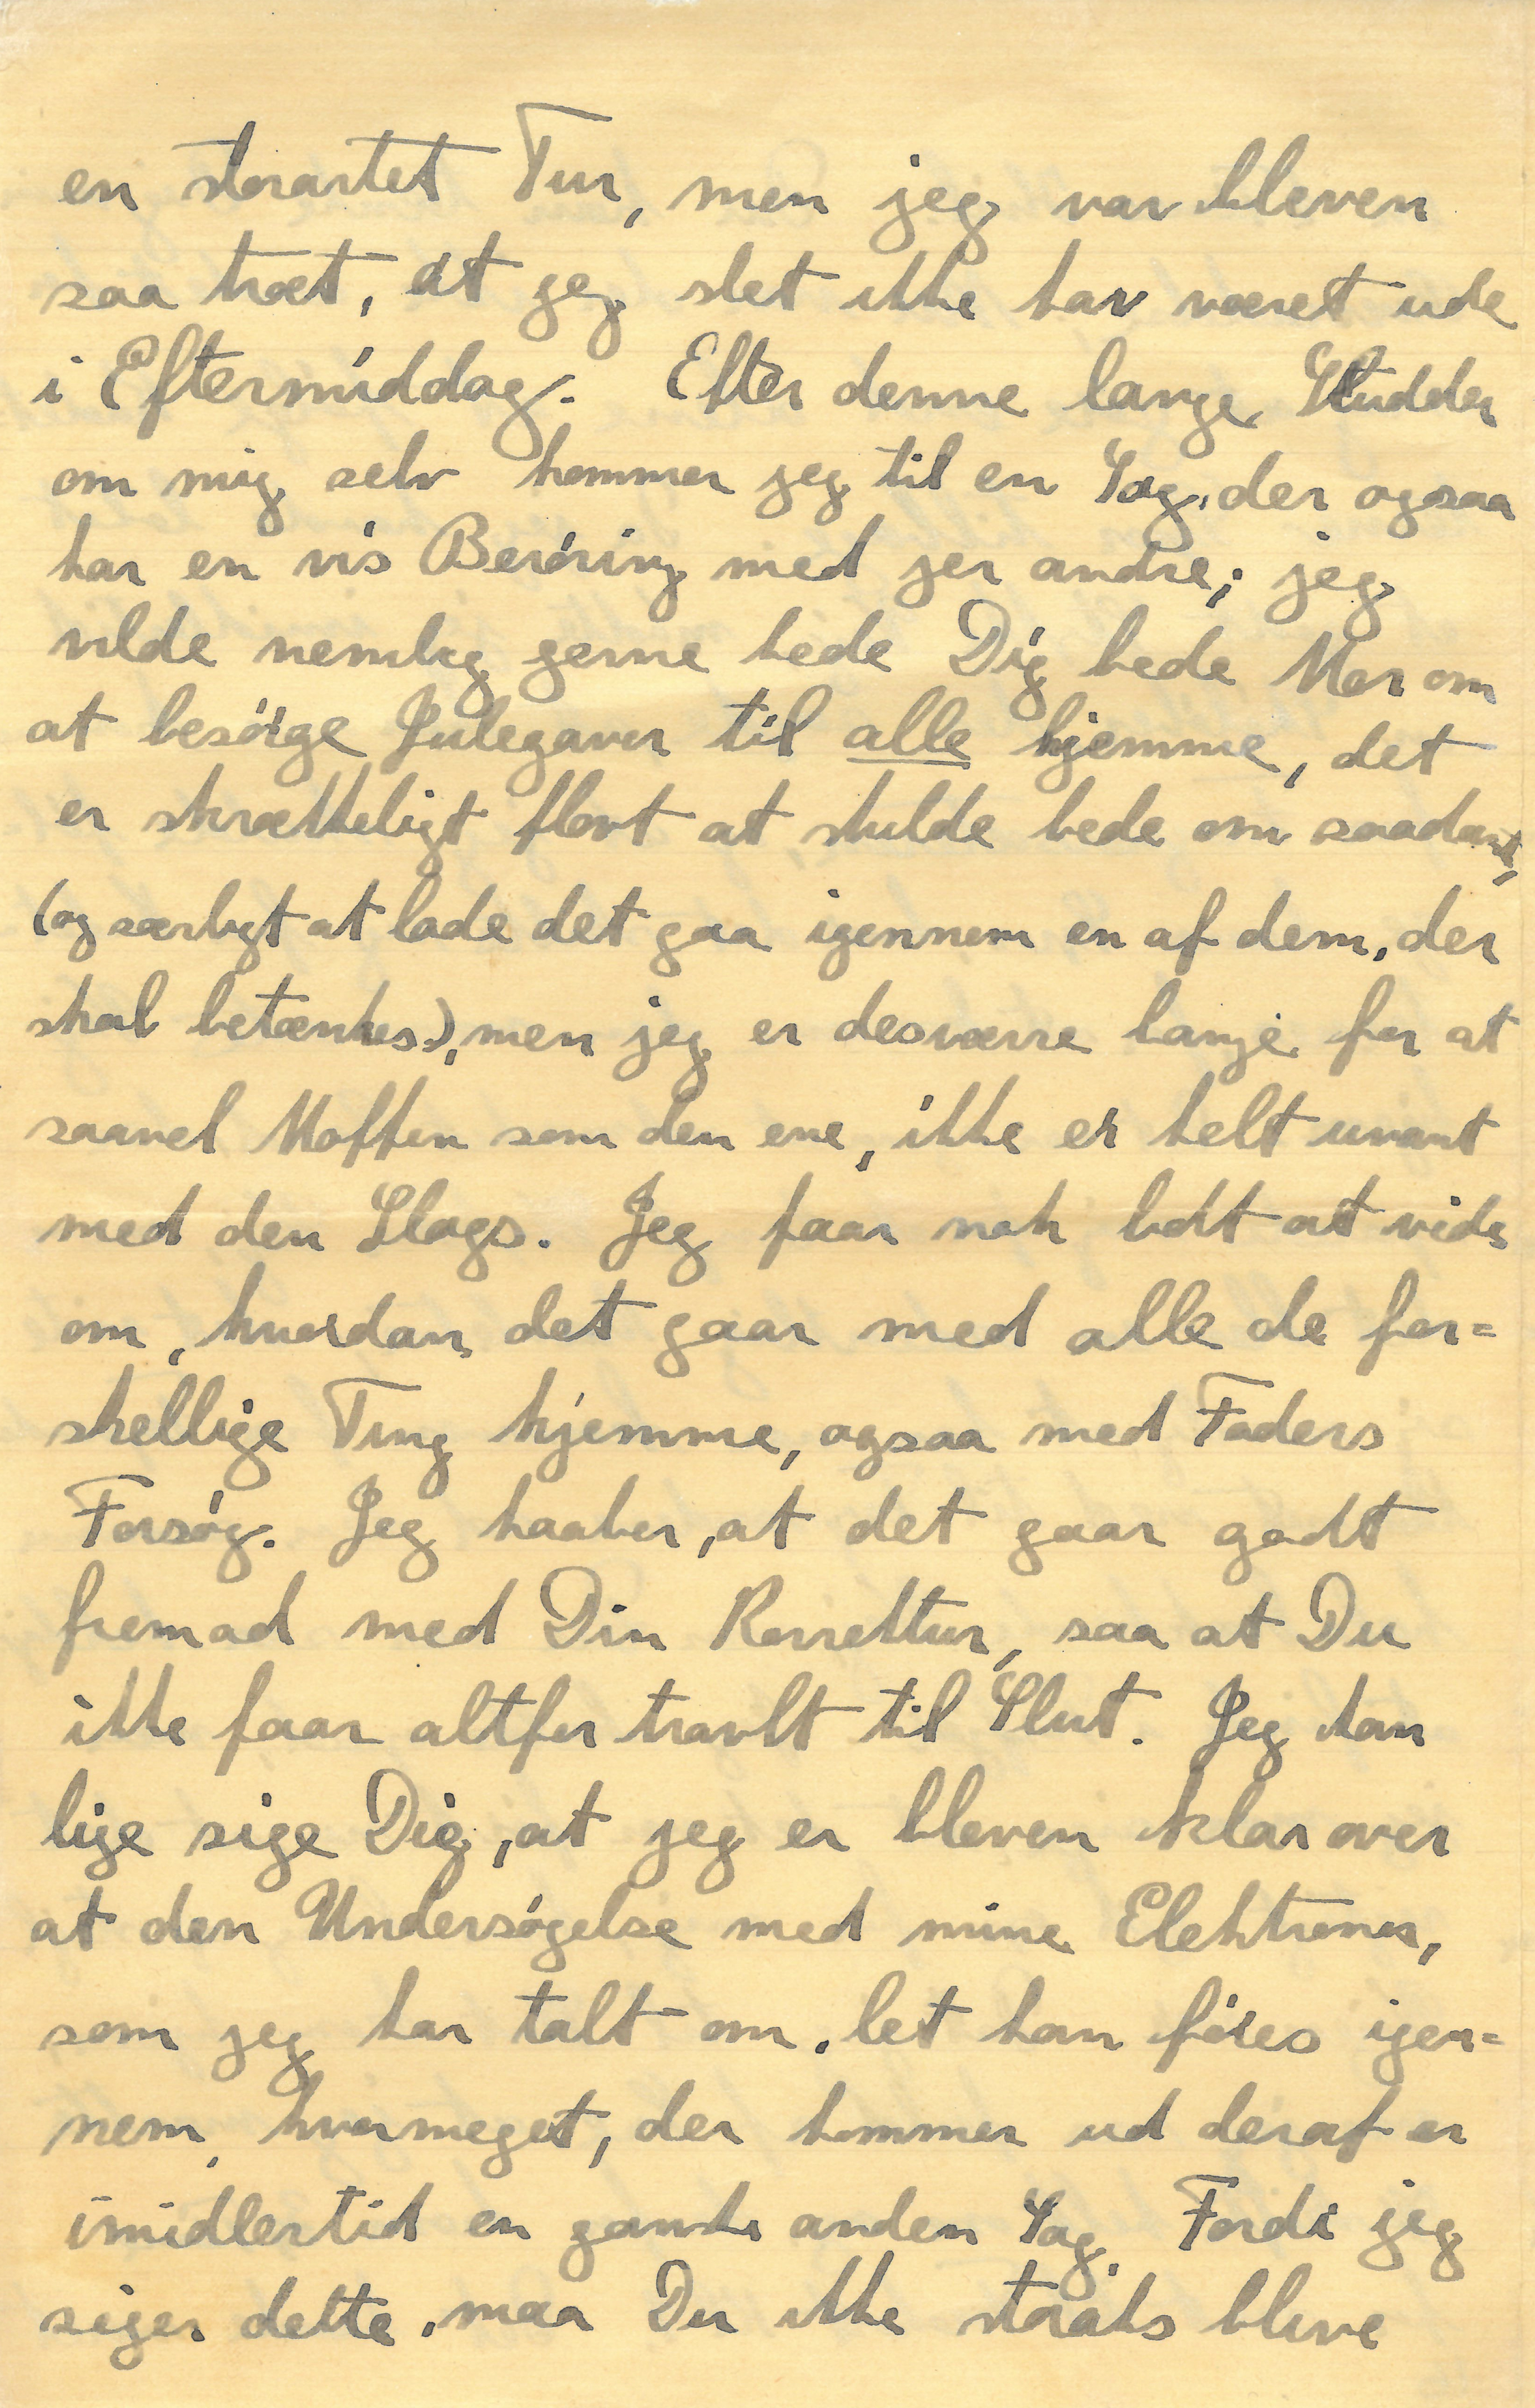 en storartet Tur, men jeg var bleven
saa træt, at jeg slet ikke har været ude
i Eftermiddag. Efter denne lange Sludder
om mig selv kommer jeg til en Sag, der ogsaa
har en vis Beröring med jer andre; jeg
vilde nemlig gerne bede Dig bede Mor om
at besörge Julegaver til alle hjemme, det
er skrækkeligt flovt at skulde bede om saadant,
(og særligt at lade det gaa igennem en af dem, der
skal betænkes), men jeg er desværre bange for at
saavel Moffen som den ene, ikke er helt uvant
med den Slags. Jeg faar nok lidt at vide
om, hvordan det gaar med alle de for=
skellige Ting hjemme, ogsaa med Faders
Forsög. Jeg haaber, at det gaar godt
fremad med Din Korrektur, saa at Du
ikke faar altfor travlt til Slut. Jeg kan
lige sige Dig, at jeg er bleven klar over
at den Undersögelse med mine Elektroner,
som jeg har talt om, let kan föres igen=
nem, hvormeget, der kommer ud deraf er
imidlertid en ganske anden Sag. Fordi jeg
siger dette, maa Du ikke straks blive